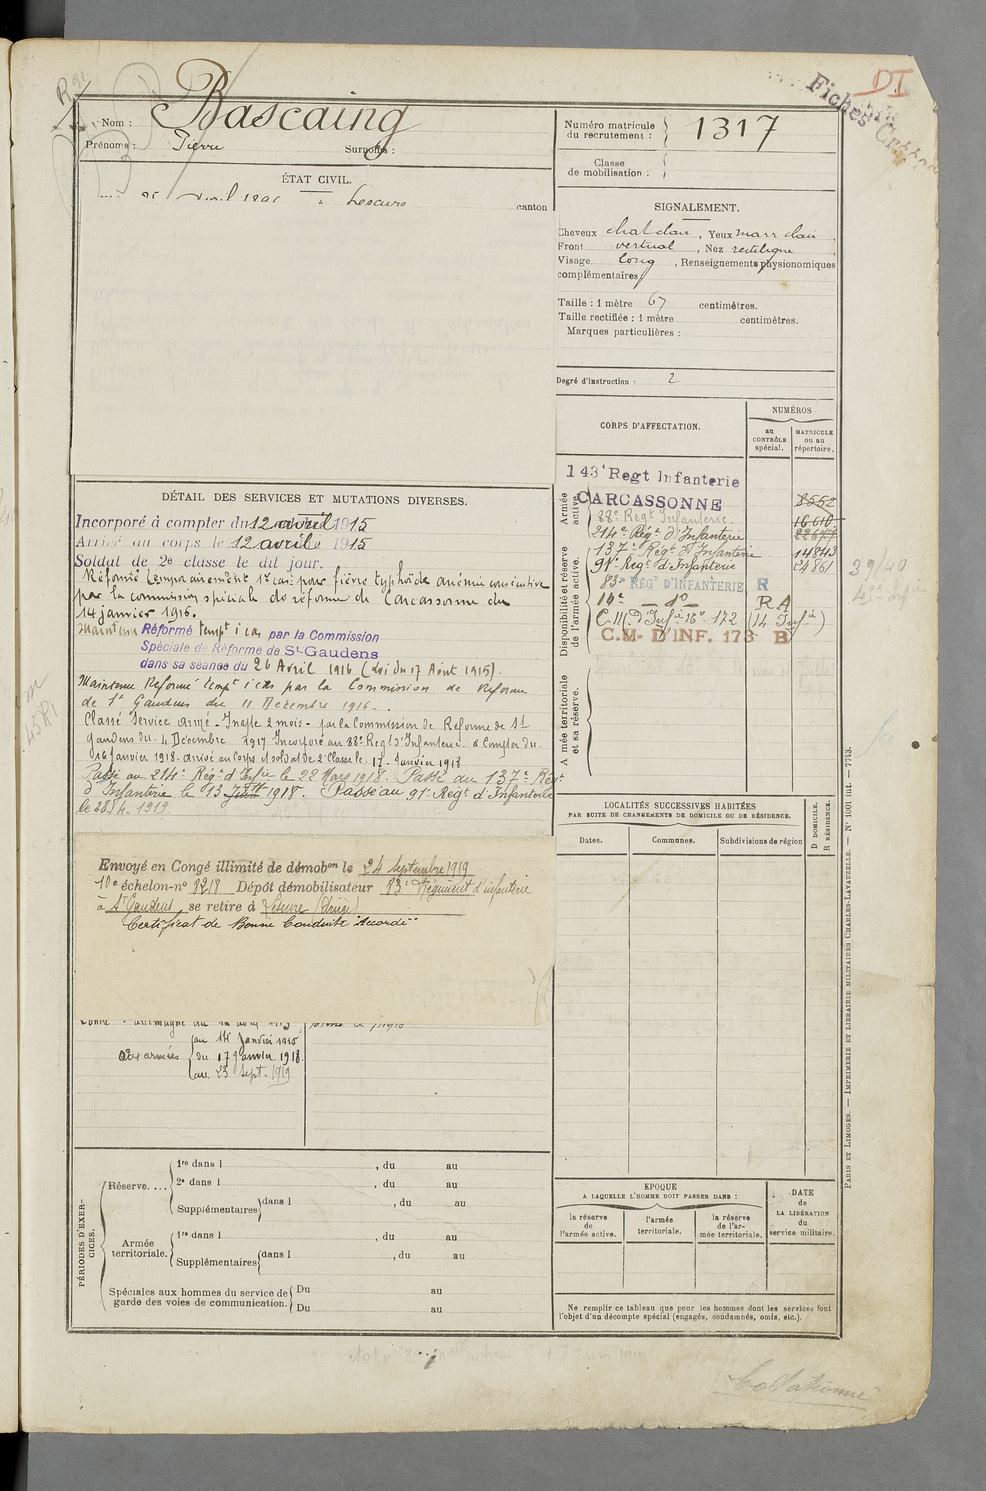 Nom : Bascaing
Prénoms : Pierre Surnoms :
Numéro matricule du recrutement : 1317
Classe de mobilisation :
Fiches
DI
ÉTAT CIVIL.
avril à Lescure canton
SIGNALEMENT.
Cheveux chat clair, Yeux marr clair,
Front vertical, Nez rectiligne,
Visage long, Renseignements physionomiques
complémentaires
Taille : 1 mètre 67 centimètres.
Taille rectifiée : 1 mètre centimètres.
Marques particulières :
Degré d'instruction : 2
CORPS D'AFFECTATION.
NUMÉROS
au CONTRÔLE spécial.
MATRICULE ou au répertoire.
Armée active.
143e Regt Infanterie
CARCASSONNE 8552
88e Regt Infanterie. 16610
214e Régt d'Infanterie 22677
Disponibilité et réserve de l'armée active.
137e Régt d'Infanterie 14843
91e Régt d'Infanterie 24861
83e REGt D'INFANTERIE R
RA
C.M. D'INF. 173 B
A mée territoriale et sa réserve.
DÉTAIL DES SERVICES ET MUTATIONS DIVERSES.
Incorporé à compter du 12 avril 1915
Arrivé au corps le 12 avril 1915
Soldat de 2e classe le dit jour.
Réformé temporairement 1er cas: pour fièvre typhoïde anémie consécutive
par la commission spéciale de réforme de Carcassonne du
14 janvier 1916.
Maintenu Réformé tempt 1 cas par la Commission
Spéciale de Réforme de St-Gaudens
dans sa séance du 26 Avril 1916 (Loi du 17 Août 1915).
Maintenu Réformé tempt 1 cas par la Commission de Réforme
de St Gaudens du 11 Décembre 1916.
Classé Service armé - Inapte 2 mois - par la Commission de Réforme de St
Gaudens du 4 Décembre 1917 Incorporé au 88e Regt d'Infanterie à Compter du
16 Janvier 1918. arrivé au Corps et soldat de 2e Classe le 17 Janvier 1918
Passé au 214e Régt d'Infie le 22 Mars 1918. Passé au 137e Régt
d'Infanterie le 13 Juin 1918. Passé au 91e Régt d'Infanterie
le 28.4.1919.
Envoyé en Congé illimité de démobon le 24 Septembre 1919
10e échelon-no Dépôt démobilisateur 83e Régiment d'infanterie
à St Gaudens se retire à Lescure (Ariège)
Certificat de Bonne Conduite "Accordé"
au 14 Janvier 1916
aux armées du 17 Janvier 1918
au 23 Sept. 1919
LOCALITÉS SUCCESSIVES HABITÉES
PAR SUITE DE CHANGEMENTS DE DOMICILE OU DE RÉSIDENCE.
Dates. Communes. Subdivisions de région
D DOMICILE.
R RÉSIDENCE.
PÉRIODES D'EXERCICES.
Réserve....
1re dans l , du au
2e dans l , du au
Supplémentaires dans l , du au
Armée territoriale.
1re dans l , du au
Supplémentaires dans l , du au
Spéciales aux hommes du service de garde des voies de communication.
Du au
Du au
EPOQUE
A LAQUELLE L'HOMME DOIT PASSER DANS :
la réserve de l'armée active.
l'armée territoriale.
la réserve de l'armée territoriale.
DATE de LA LIBÉRATION du service militaire.
Ne remplir ce tableau que pour les hommes dont les services font
l'objet d'un décompte spécial (engagés, condamnés, omis, etc.).
PARIS ET LIMOGES. — IMPRIMERIE ET LIBRAIRIE MILITAIRES CHARLES-LAVAUZELLE. — No 1001 int. — 7743.
Collationné